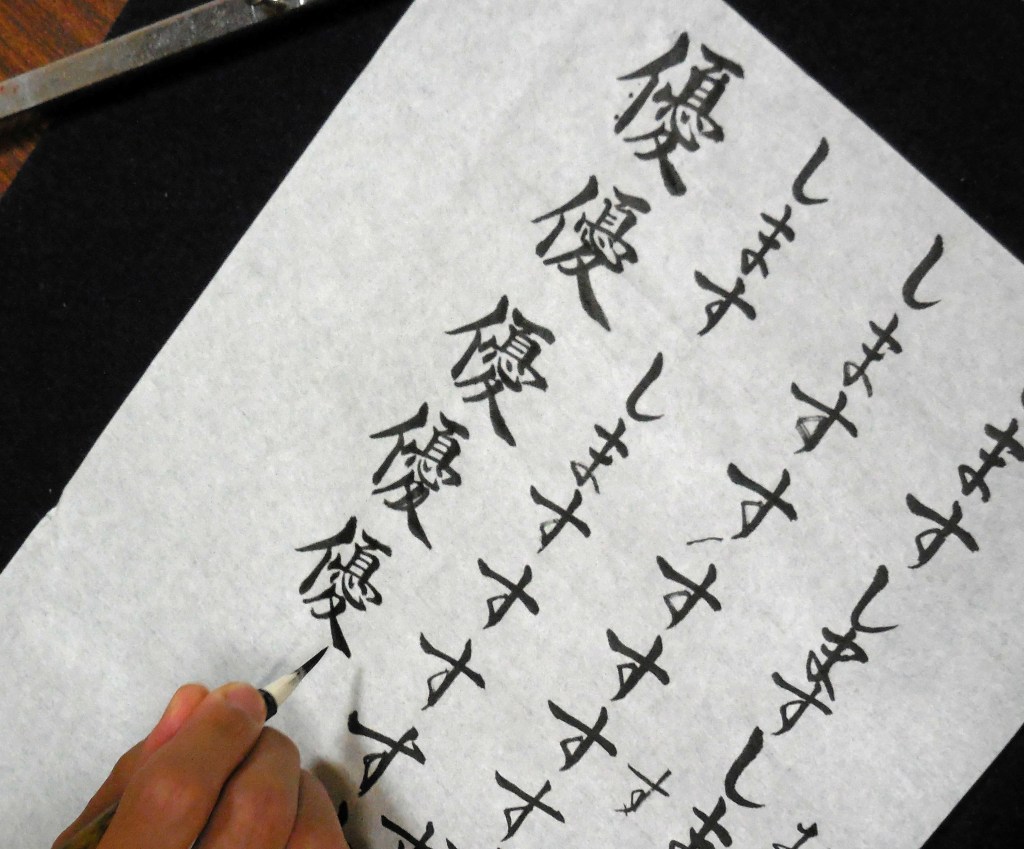 ますしますしま
す
しますすすすすす
しますしますすすす
優優優優優